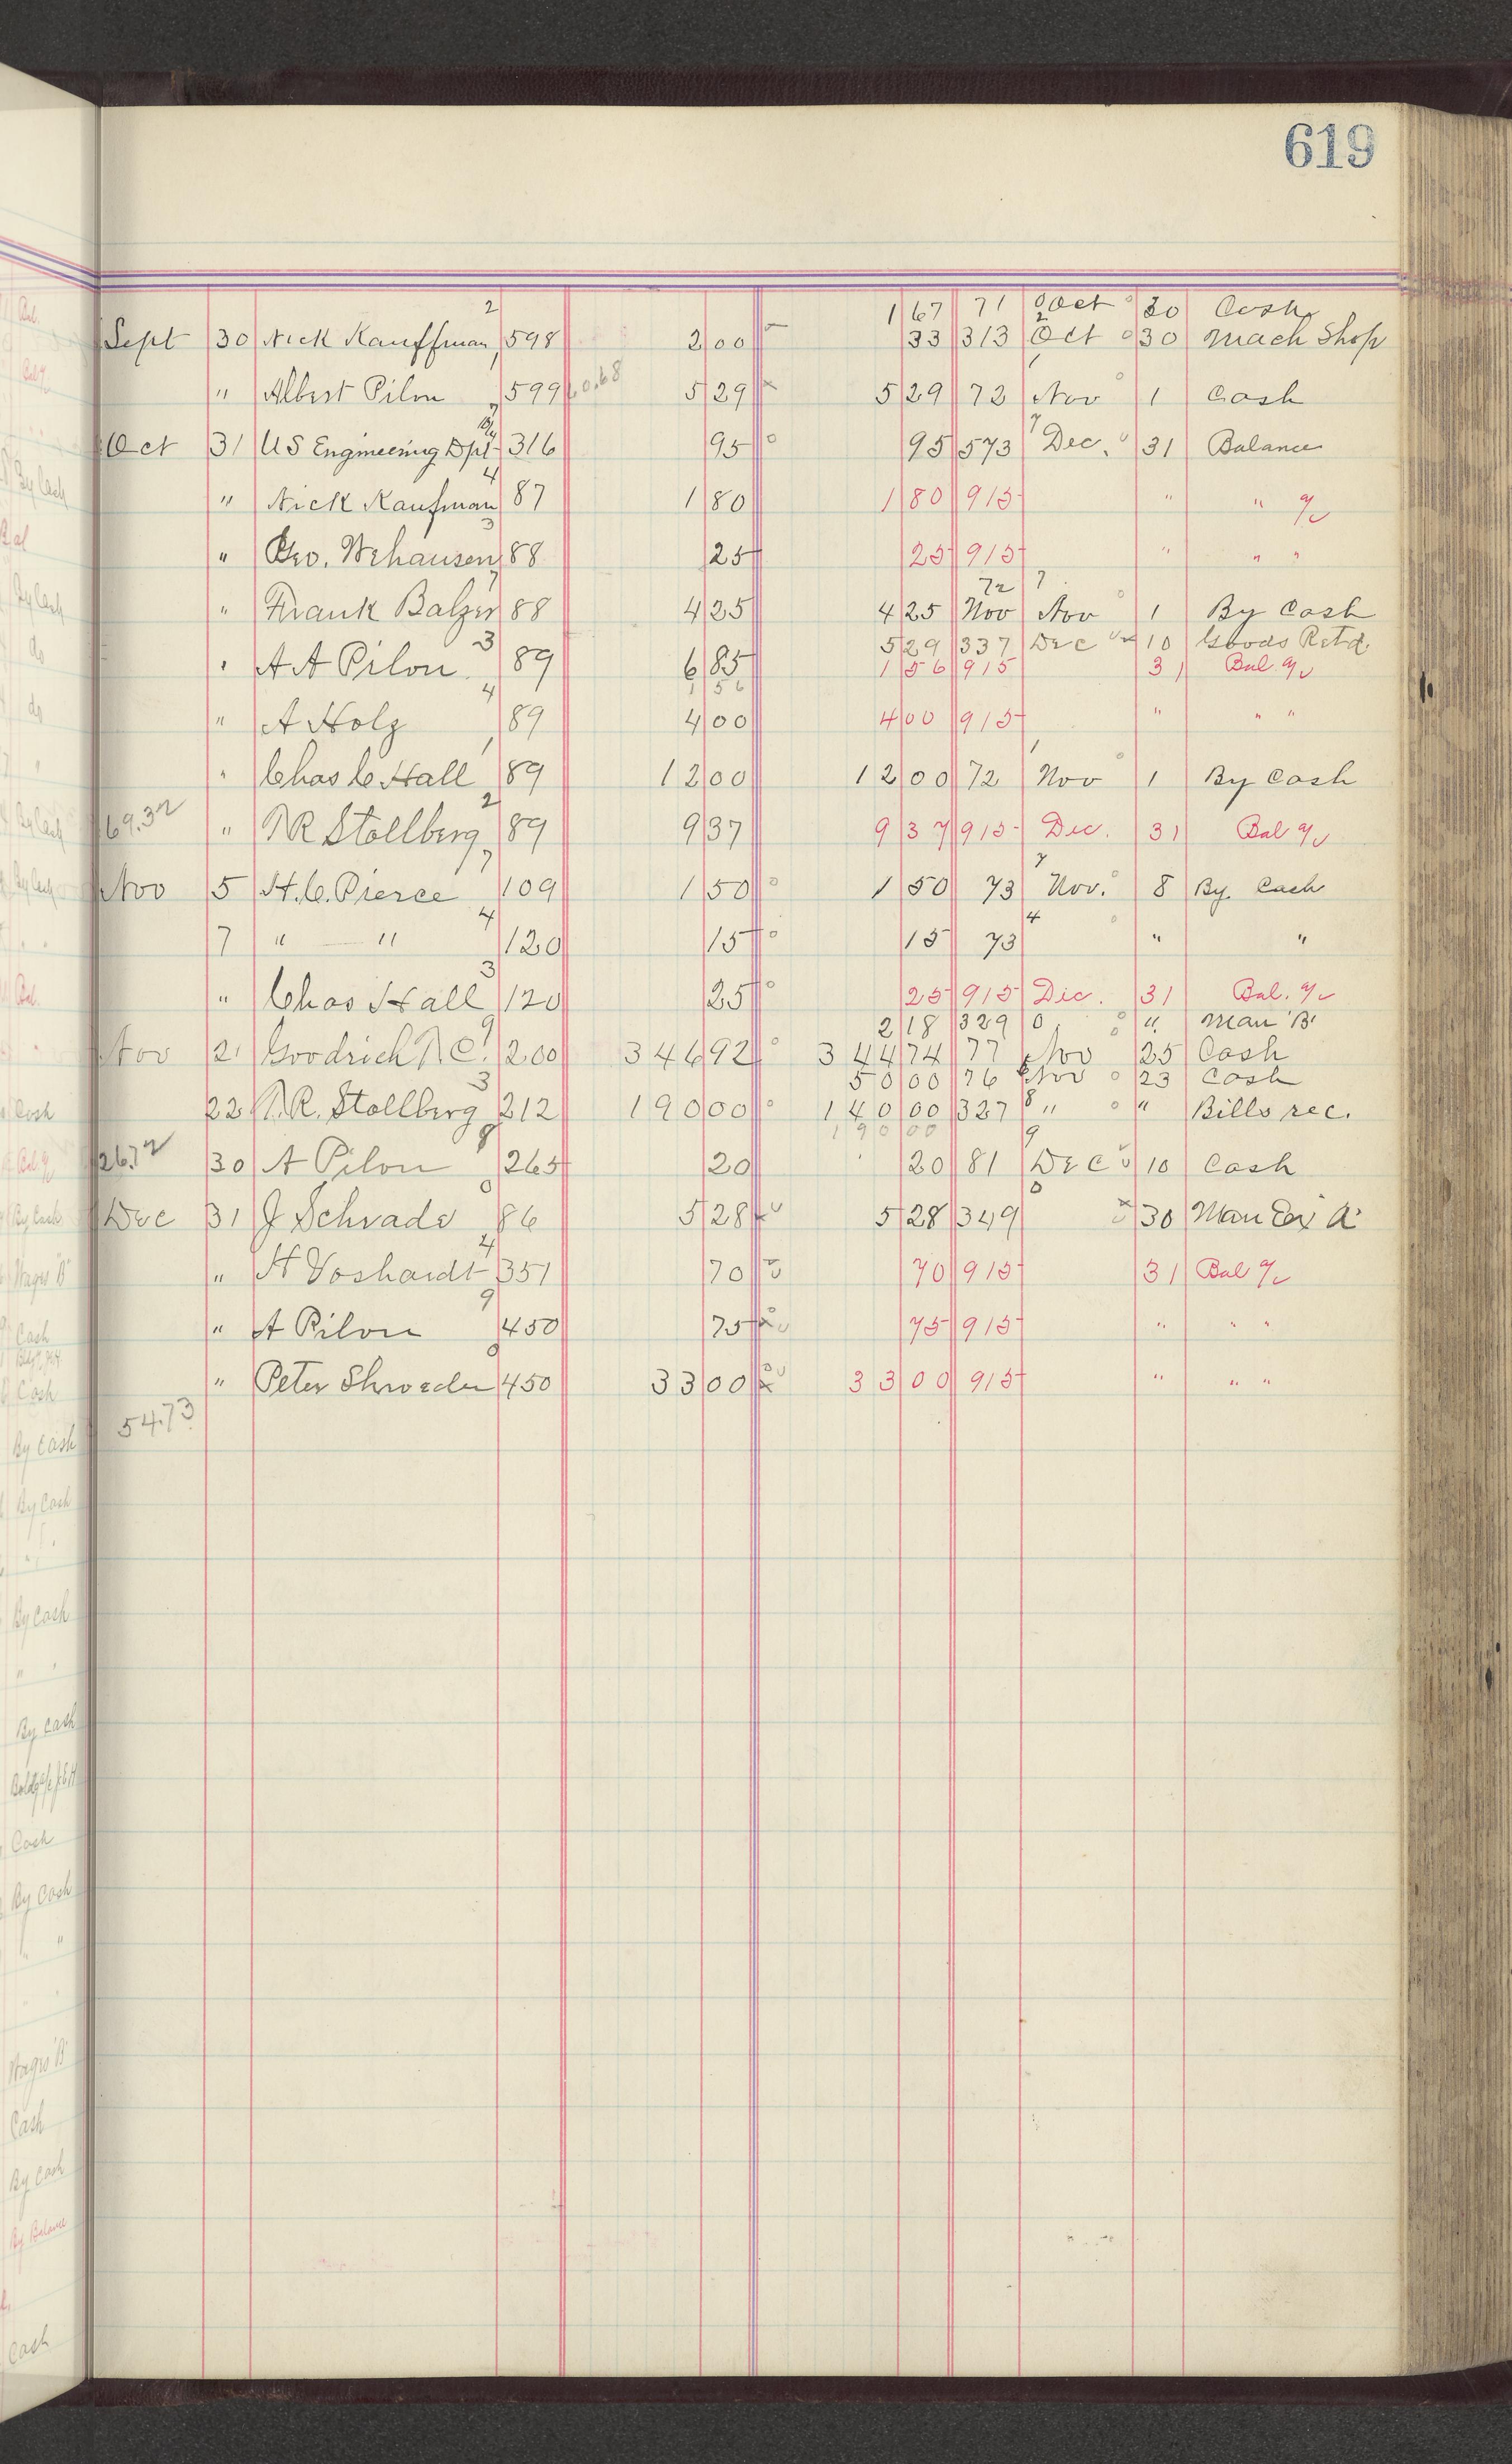 619
2 1 67 71 0 Oct 30 Cash
Sept 30 Nick Kauffman 598 2 00 33 313 2 Oct 30 Mach Shop
" Albert Pilon 599 60.68 5 29 5 29 72 1 Nov 1 Cash
Oct 31 US Engineering Dpt 316 95 95 573 7 Dec. 31 Balance
" Nick Kaufman 4 87 1 80 1 80 915 " "
" Geo. Wehausen 3 88 25 25 915 " " "
" Frank Balzer 7 88 4 25 4 25 72 Nov 7 Nov 1 By Cash
5 29 337 Dec 10 Goods Retd.
" A A Pilon 3 89 6 85 1 56 915 31 Bal.
1 56
" A Holz 4 89 4 00 4 00 915 " " "
" Chas C Hall 1 89 12 00 12 00 72 1 Nov 1 By Cash
69.32 " N R Stollberg 2 89 9 37 9 37 915 Dec. 31 Bal
Nov 5 H. C. Pierce 7 109 1 50 1 50 73 7 Nov. 8 By Cash
7 " " 4 120 15 15 73 4 " "
" Chas Hall 3 120 25 25 915 Dec. 31 Bal.
2 18 329 0 " Man 'B'
Nov 21 Goodrich N C. 9 200 346 92 344 74 77 Nov 25 Cash
50 00 76 Nov 23 Cash
22 N. R. Stollberg 3 212 190 00 140 00 327 8 " " Bills rec.
190 00
26.72 30 A Pilon 8 265 20 20 81 9 Dec 10 Cash
Dec 31 J Schrade 0 86 5 28 5 28 349 0 30 Man Ex 'A'
" H Voshardt 4 351 70 70 915 31 Bal
" A Pilon 9 450 75 75 915 " " "
" Peter Shroeder 0 450 33 00 33 00 915 " " "
54.73